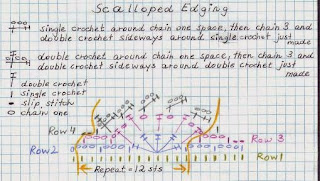 Scalloped Edging
single crochet around chain one space, then chain 3 and
double crochet sideways around single crochet just
made
double crochet around chain one space, then chain 3 and
double crochet sideways around double crochet just
made
double crochet
single crochet
slip stitch
chain one
Row 4
Row 3
Row 2
Row 1
Repeat = 12 sts